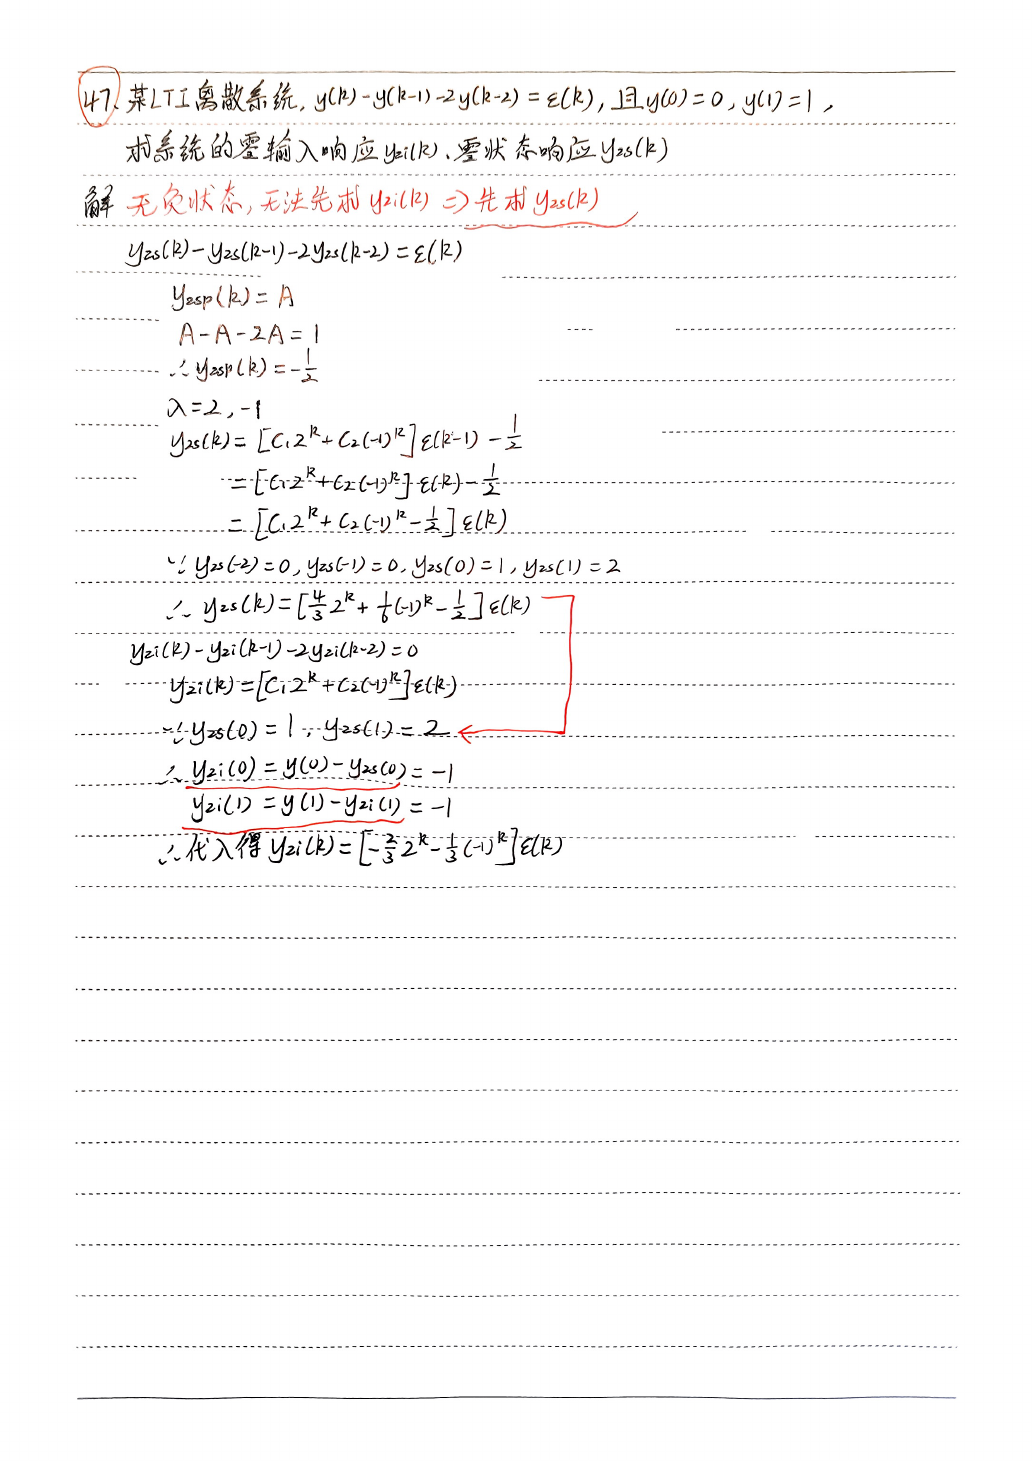 47. 某LTI离散系统, y(k)-y(k-1)-2y(k-2)=ε(k), 且y(0)=0, y(1)=1,
求系统的零输入响应yzi(k)、零状态响应yzs(k)
解 无负状态, 无法先求yzi(k) ⇒ 先求yzs(k)
yzs(k)-yzs(k-1)-2yzs(k-2)=ε(k)
yzsp(k)=A
A-A-2A=1
∴ yzsp(k)=-1/2
λ=2, -1
yzs(k)=[C₁2^k+C₂(-1)^k]ε(k-1)-1/2
=[C₁2^k+C₂(-1)^k]ε(k)-1/2
=[C₁2^k+C₂(-1)^k-1/2]ε(k)
∵ yzs(-2)=0, yzs(-1)=0, yzs(0)=1, yzs(1)=2
∴ yzs(k)=[4/3 2^k+1/6(-1)^k-1/2]ε(k)
yzi(k)-yzi(k-1)-2yzi(k-2)=0
yzi(k)=[C₁2^k+C₂(-1)^k]ε(k)
∵ yzs(0)=1, yzs(1)=2
∴ yzi(0)=y(0)-yzs(0)=-1
yzi(1)=y(1)-yzi(1)=-1
∴ 代入得 yzi(k)=[-2/3 2^k-1/3(-1)^k]ε(k)